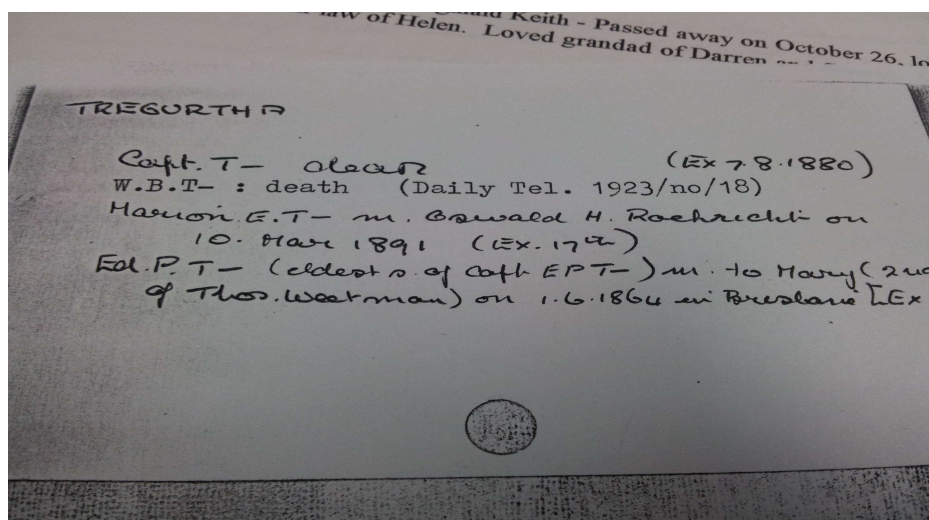 Keith - Passed away on October 26,
law of Helen. Loved grandad of Darren
TREGURTHA
Capt. T- death (Ex 7.8.1880)
W.B.T- : death (Daily Tel. 1923/no/18)
Marion.E.T- m. Oswald H. Roehricht on
10. Mar 1891 (Ex. 17th)
Ed.P.T- (eldest s. of Capt EPT-) m. to Mary (2nd
of Thos. Westman) on 1.6.1864 in Bresbane [Ex